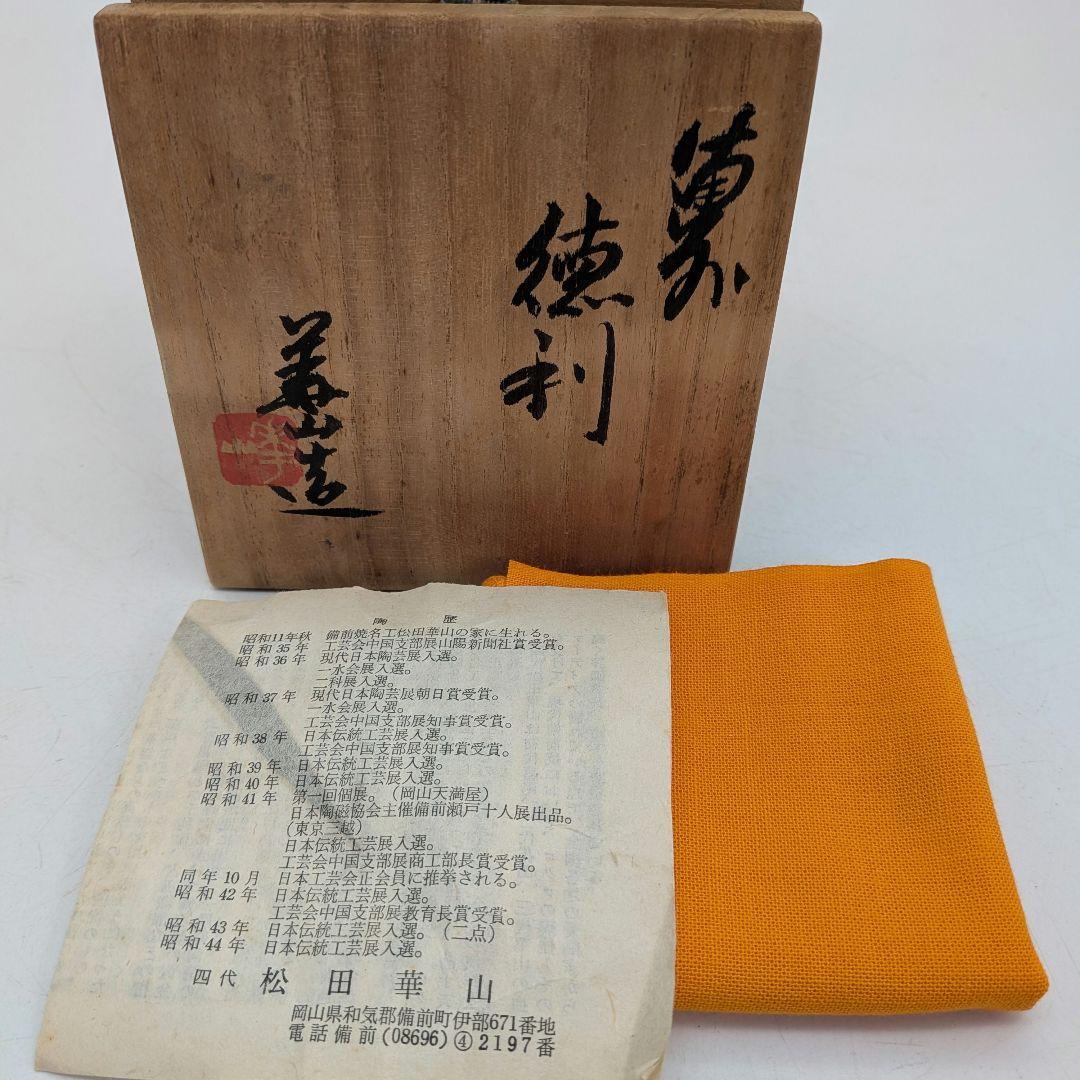 備前
徳利
華山造
陶歴
昭和11年秋 備前焼名工松田華山の家に生れる。
昭和35年 工芸会中国支部展山陽新聞社賞受賞。
昭和36年 現代日本陶芸展入選。
一水会展入選。
二科展入選。
昭和37年 現代日本陶芸展朝日賞受賞。
一水会展入選。
工芸会中国支部展知事賞受賞。
昭和38年 日本伝統工芸展入選。
工芸会中国支部展知事賞受賞。
昭和39年 日本伝統工芸展入選。
昭和40年 日本伝統工芸展入選。
昭和41年 第一回個展。(岡山天満屋)
日本陶磁協会主催備前瀬戸十人展出品。
(東京三越)
日本伝統工芸展入選。
工芸会中国支部展商工部長賞受賞。
同年10月 日本工芸会正会員に推挙される。
昭和42年 日本伝統工芸展入選。
工芸会中国支部展教育長賞受賞。
昭和43年 日本伝統工芸展入選。(二点)
昭和44年 日本伝統工芸展入選。
四代 松田華山
岡山県和気郡備前町伊部671番地
電話備前(08696)④2197番